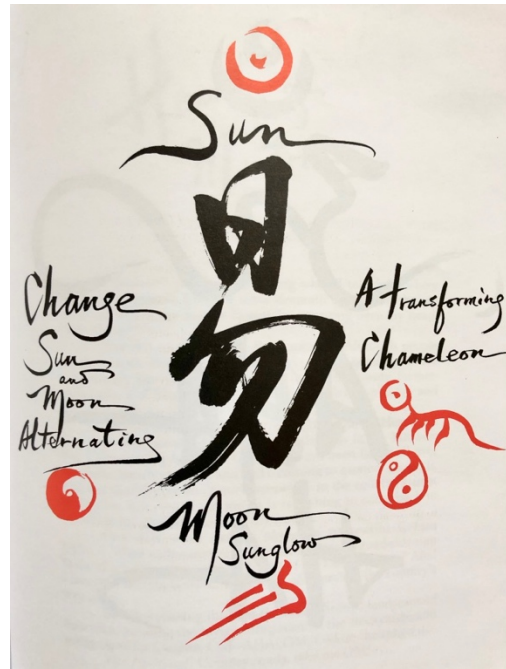 Sun
易
Change
Sun
and
Moon
Alternating
A transforming
Chameleon
Moon
Sunglow